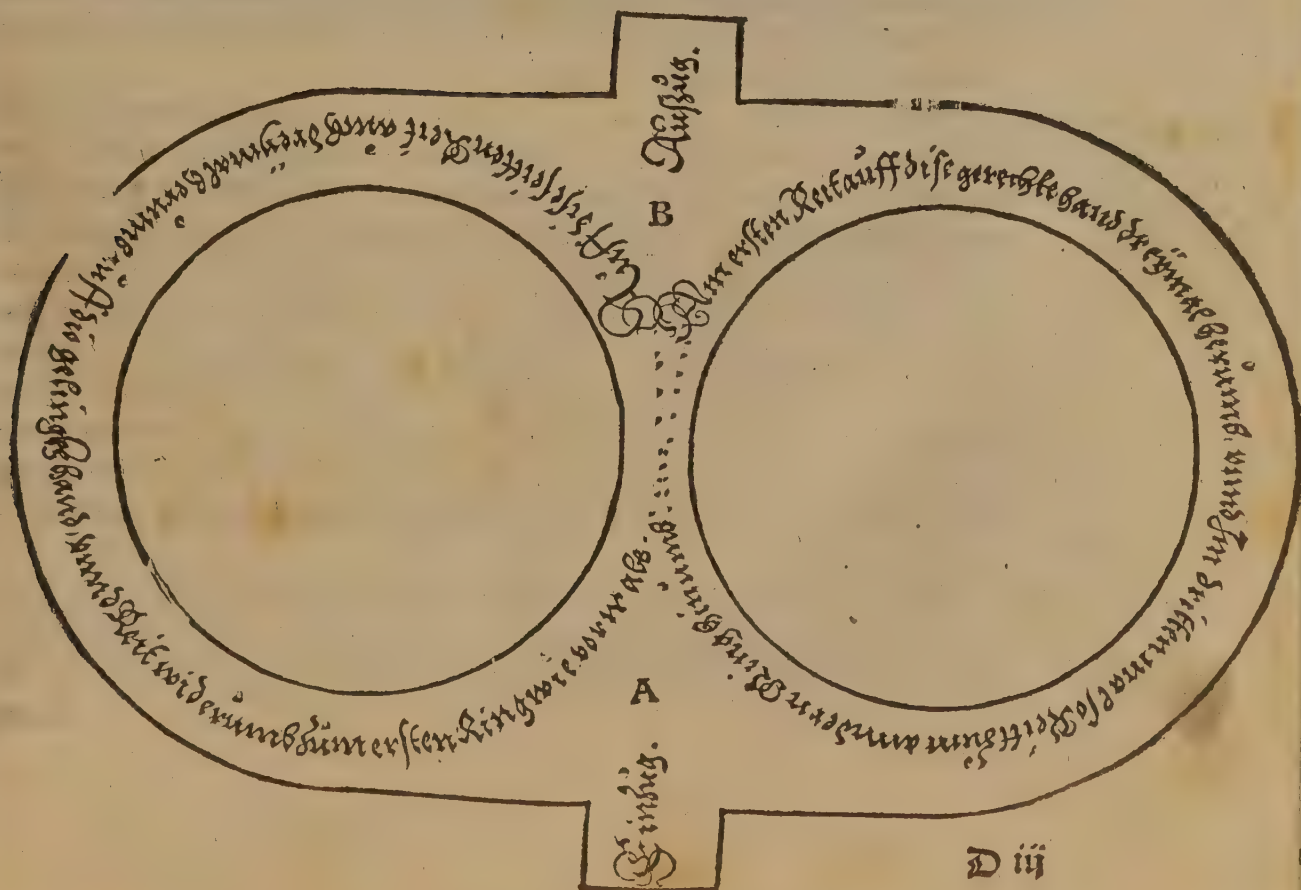 Außzug.
B
Am ersten Reit auff dise gerechte hand dreymal herumb, unnd Im dritten mal so Reit zum anndern Ring hinumb
Auff dise seitten Reit auch dreymal herumb, auff die gelingke hannd, wider umb zum ersten Ring wie vormals.
A
Einzug.
D iij